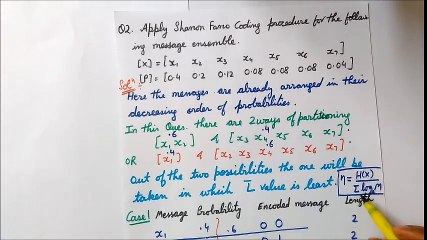 Q2. Apply Shannon Fano Coding procedure for the follow
ing message ensemble.
[X] = [x₁ x₂ x₃ x₄ x₅ x₆ x₇]
Solⁿ: [P] = [0.4 0.2 0.12 0.08 0.08 0.08 0.04]
Here the messages are already arranged in their
decreasing order of probabilities.
In this Ques. there are 2 ways of partitioning
.6 .4
[x₁, x₂] & [x₃ x₄ x₅ x₆ x₇]
.4 .6
OR [x₁] & [x₂ x₃ x₄ x₅ x₆ x₇]
Out of the two possibilities the one will be
taken in which L̄ value is least. η = H(X) / L̄ log M
Case 1 Message Probability Encoded message Length
x₁ .4 .6 0 0 2
2